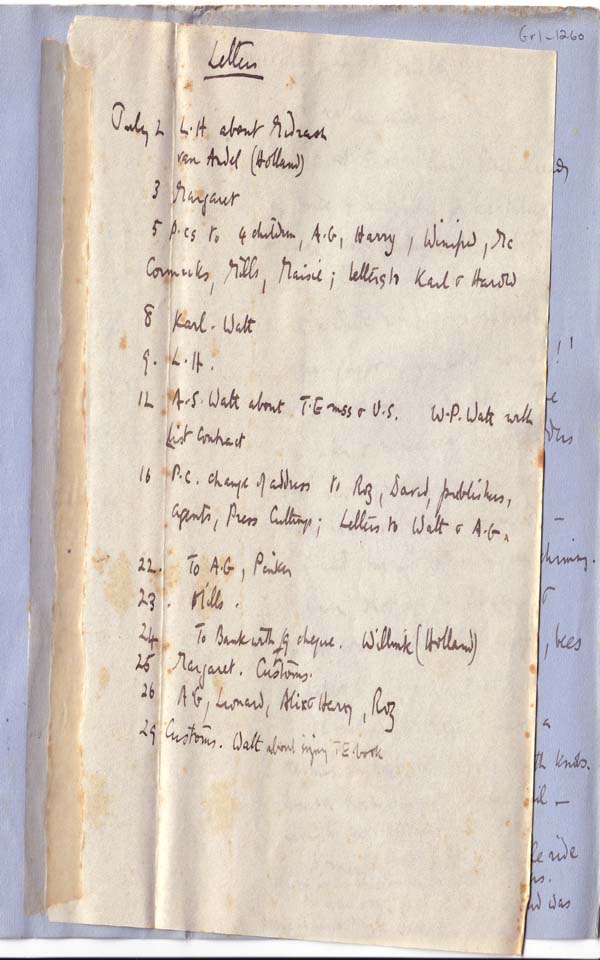 Gr1-1260
Letters
July 2 L.H. about Midrash
van Ardel (Holland)
3 Margaret
5 P.cs to 4 children, A.G, Harry, Winifred, Mc
Cormacks, Mills, Maisie; letters to Karl & Harold
8 Karl. Watt
9. L.H.
12 A.S. Watt about T.E mss & U.S. W.P. Watt with
list contract
16 P.C. change of address to Roz, David, publishers,
agents, Press Cuttings; Letters to Watt & A.G.
22. To A.G, Pinker
23. Mills.
24 To Bank with cheque. (Holland)
25 Margaret. Customs.
26 A G, Leonard, Alix & Harry, Roz
29 Customs. Watt about T E book
!!
, bees
a
th knots.
ride
was